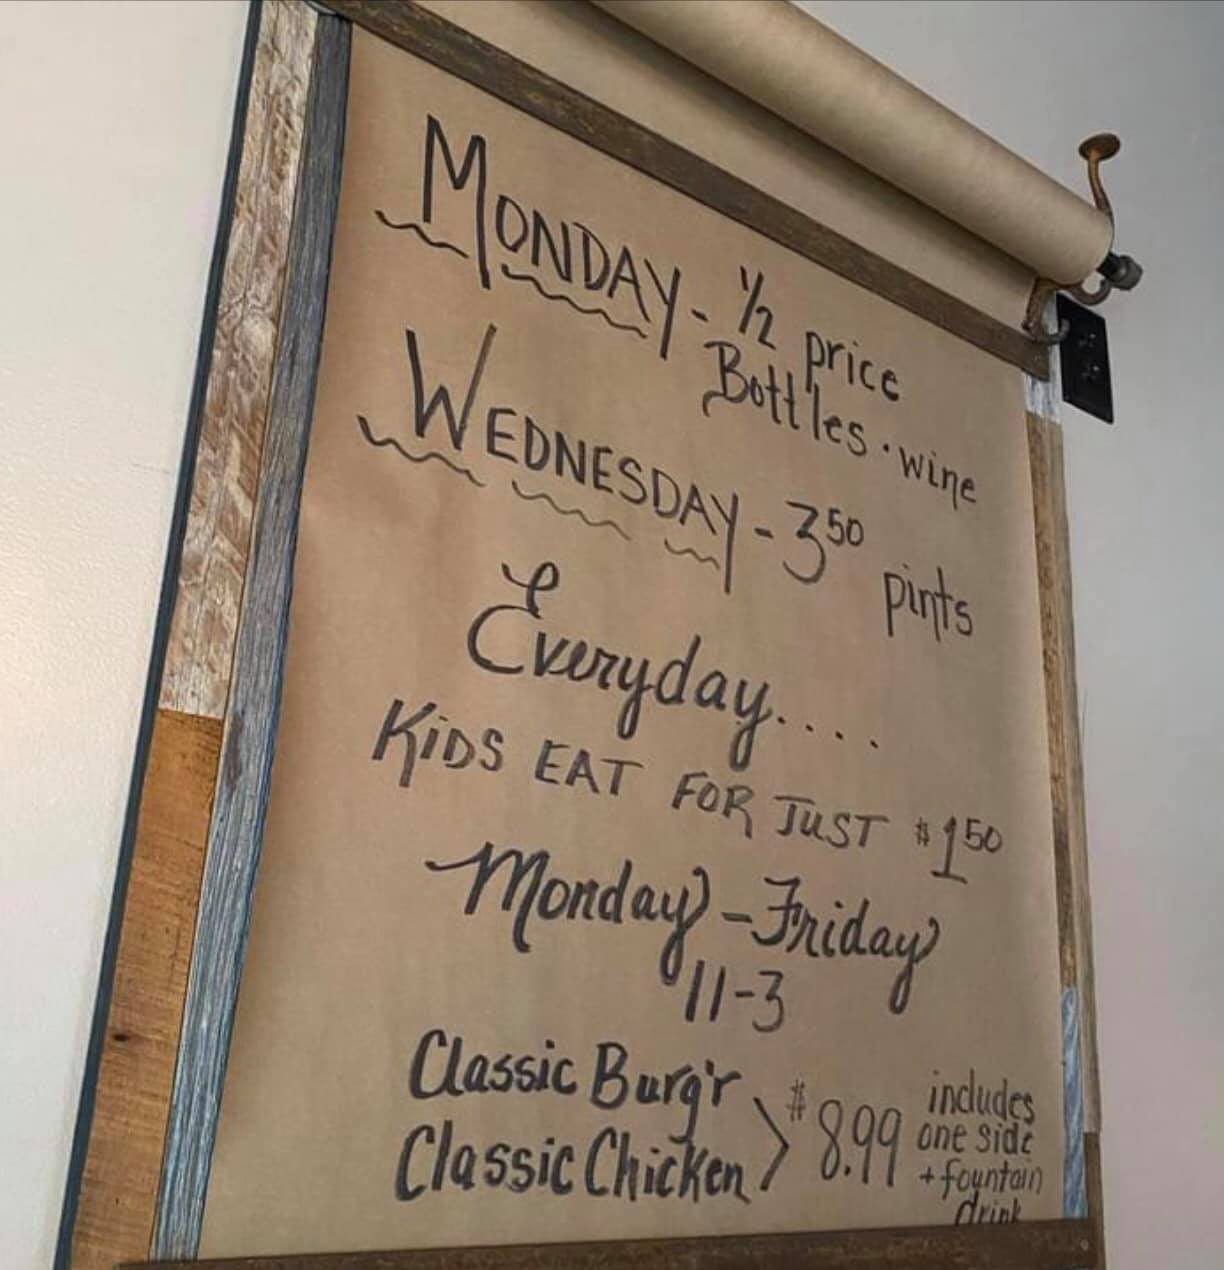 MONDAY - 1/2 price
Bottles · wine
WEDNESDAY - 3 50 pints
Everyday....
KiDS EAT FOR JUST $1 50
Monday - Friday
11-3
Classic Burg'r
Classic Chicken > $8.99
includes
one side
+ fountain
drink